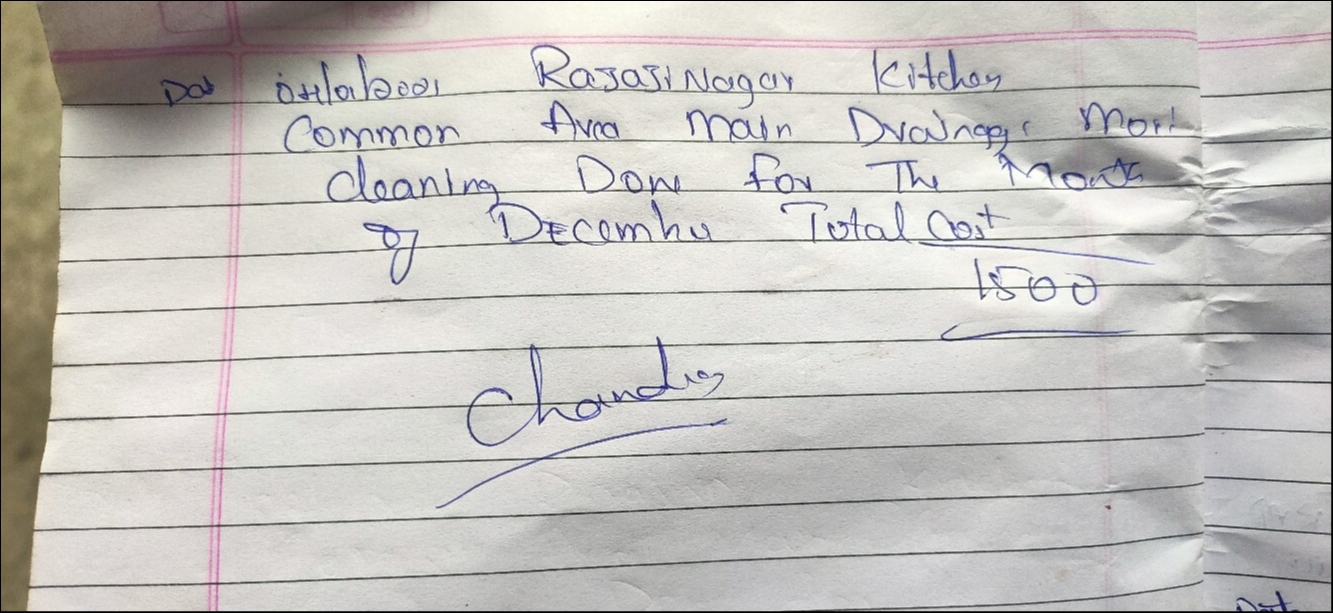 Dat Rajaji Nagar Kitchen
Common Area Main Drainage
cleaning Done for The Month
of December Total Cost
1500
Dat